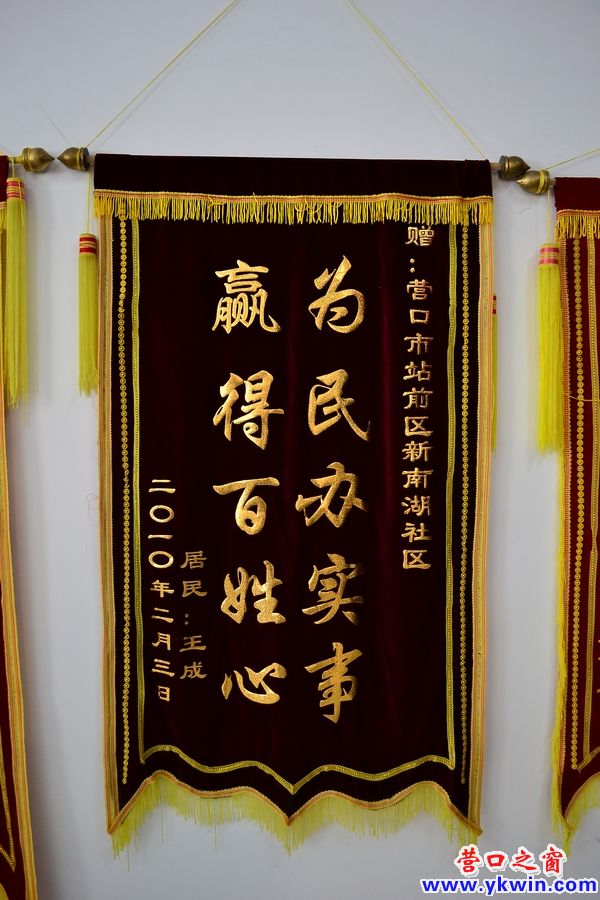 赠：营口市站前区新南湖社区
为民办实事
赢得百姓心
居民：王成
二〇一〇年二月三日
营口之窗
www.ykwin.com